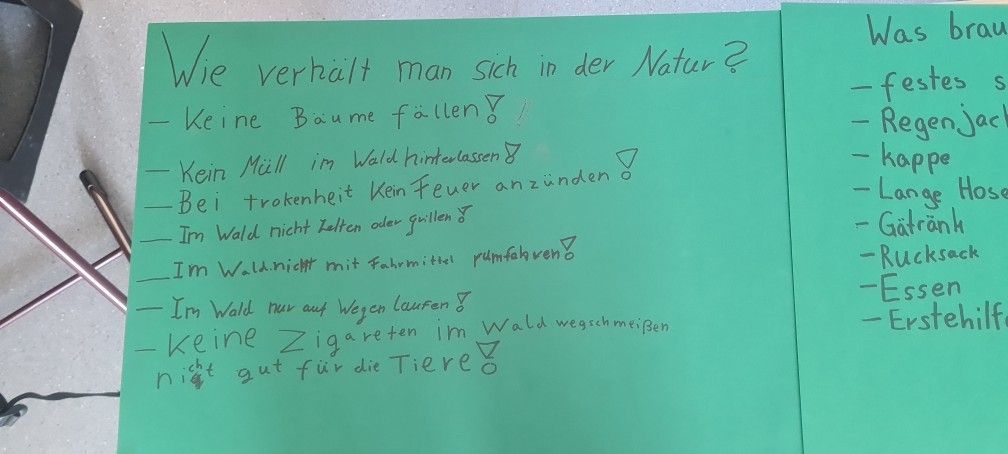 Wie verhält man sich in der Natur?
- Keine Bäume fällen!
- Kein Müll im Wald hinterlassen!
- Bei trokenheit Kein Feuer anzünden!
- Im Wald nicht Zelten oder grillen!
- Im Wald nicht mit Fahrmittel rumfahren!
- Im Wald nur auf Wegen laufen!
- Keine Zigareten im Wald wegschmeißen
nicht gut für die Tiere!
Was brau
- festes s
- Regenjack
- Kappe
- Lange Hose
- Gätränk
- Rucksack
- Essen
- Erstehilf